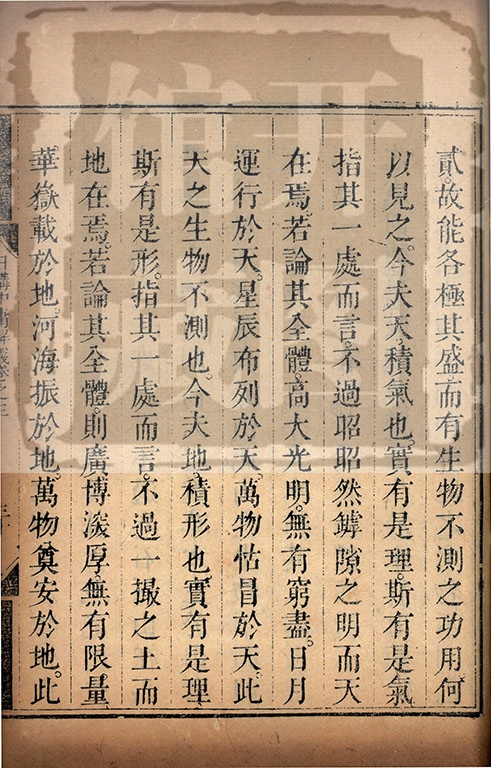 貳。故能各極其盛而有生物不測之功用。何
以見之。今夫天。積氣也。實有是理。斯有是氣
指其一處而言。不過昭昭然罅隙之明。而天
在焉。若論其全體。高大光明。無有窮盡。日月
運行於天。星辰布列於天。萬物怙冒於天。此
天之生物不測也。今夫地。積形也。實有是理
斯有是形。指其一處而言。不過一撮之土。而
地在焉。若論其全體。則廣博深厚。無有限量
華嶽載於地。河海振於地。萬物奠安於地。此
日講中庸解義卷之三